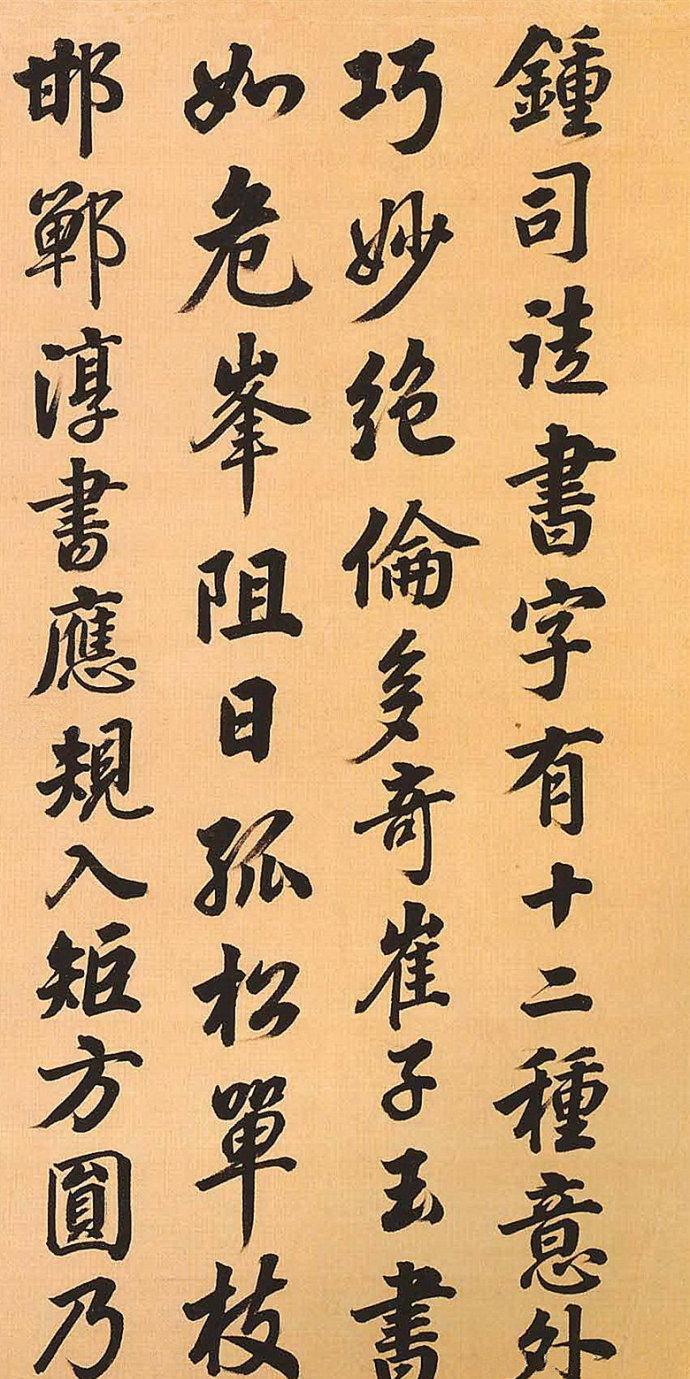 鍾司徒書字有十二種意外
巧妙絶倫多奇崔子玉書
如危峯阻日孤松單枝
邯鄲淳書應規入矩方圓乃